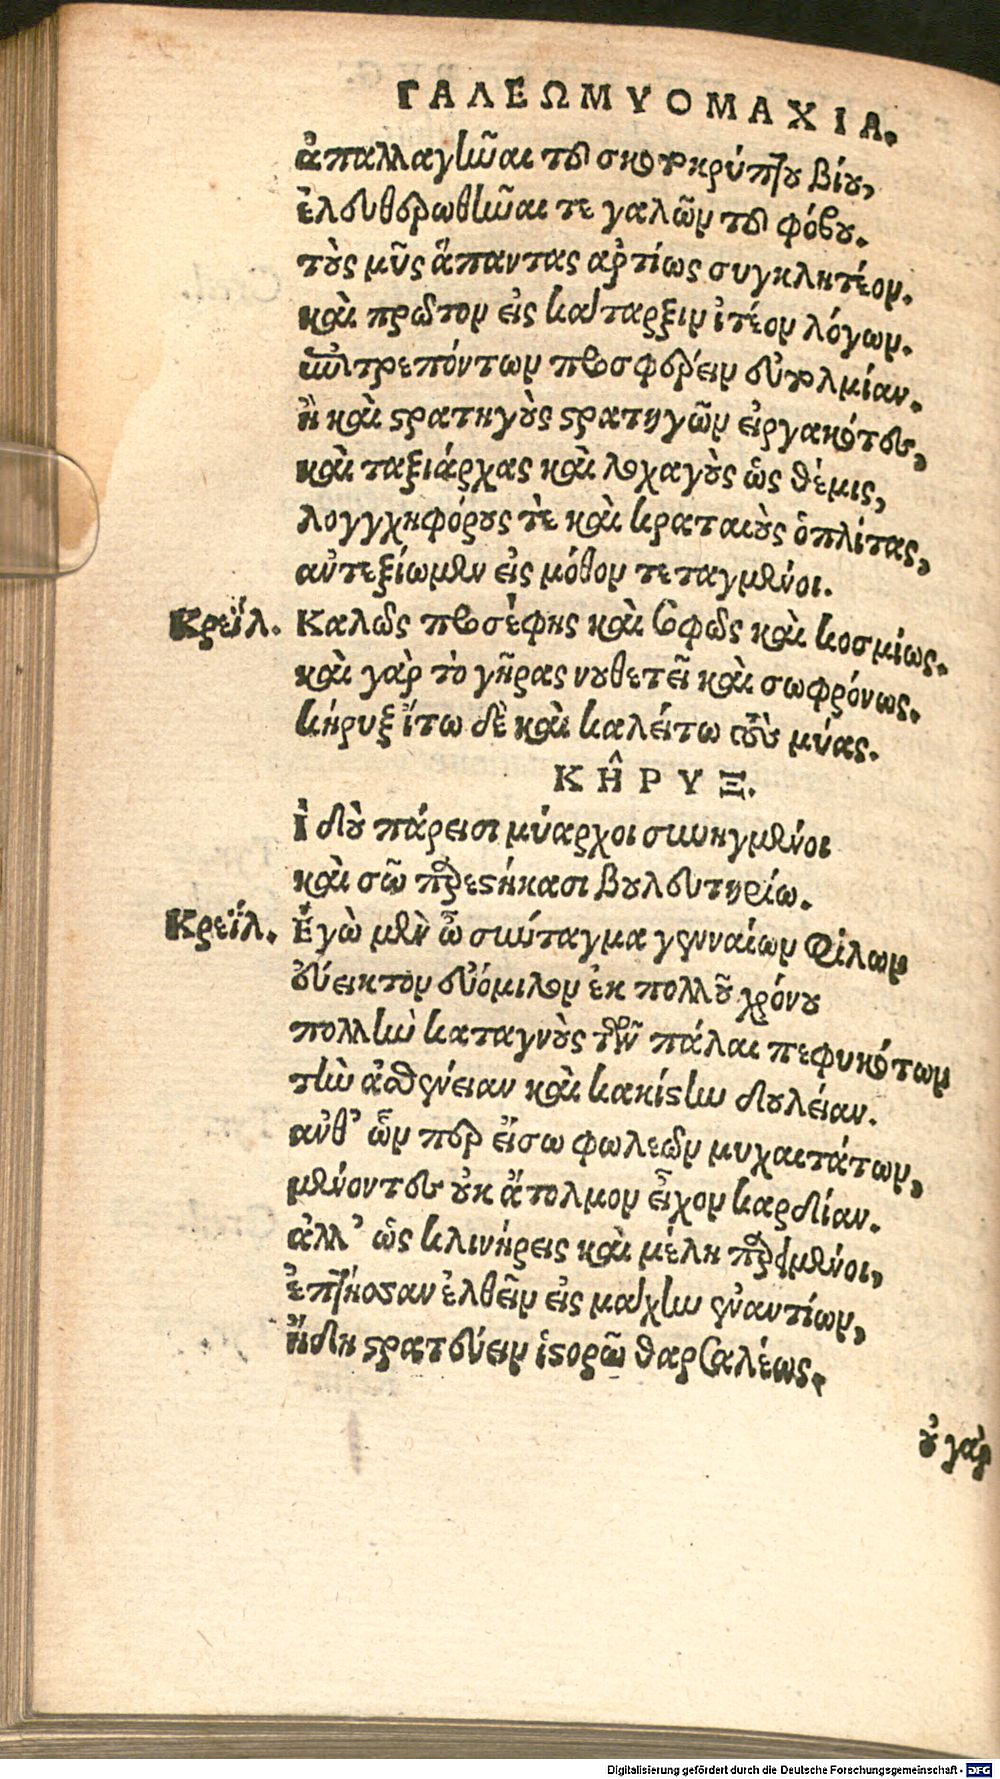 ΓΑΛΕΩΜΥΟΜΑΧΙΑ.
ἀπαλλαγῆναι τοῦ σκοτοκρύπτου βίου,
ἐλευθερωθῆναι τε γαλῶν τοῦ φόβου.
τοὺς μῦς ἅπαντας ἀρτίως συγκλητέον.
καὶ πρῶτον εἰς κάταρξιν ἰτέον λόγων.
ἐπιτρεπόντων προσφέρειν εὐτολμίαν.
ἢ καὶ στρατηγοὺς στρατηγῶν εἰργακότες,
καὶ ταξιάρχας καὶ λοχαγοὺς ὡς θέμις,
λογγχηφόρους τὲ καὶ κραταιοὺς ὁπλίτας,
ἀντεξίωμεν εἰς μόθον τεταγμένοι.
Κρεΐλ. Καλῶς προσέφης καὶ σοφῶς καὶ κοσμίως.
καὶ γὰρ τὸ γῆρας νουθετεῖ καὶ σωφρόνως.
κήρυξ ἴτω δὲ καὶ καλείτω τοὺς μύας.
ΚΗ͂ΡΥΞ.
Ἰδοὺ πάρεισι μύαρχοι συνηγμένοι
καὶ σῷ παρεστήκασι βουλευτηρίω.
Κρεΐλ. Ἐγὼ μὲν ὦ σύνταγμα γενναίων φίλων
εὔεικτον εὐόμιλον ἐκ πολλοῦ χρόνου
πολλὴν καταγνοὺς τῶν πάλαι πεφυκότων
τὴν ἀσθένειαν καὶ κακίστην δουλείαν.
ἀνθ' ὧν περ εἴσω φωλεῶν μυχαιτάτων,
μένοντες οὐκ ἄτολμον εἶχον καρδίαν.
ἀλλ' ὡς κλινήρεις καὶ μέλη παρειμένοι,
ἐπτήοσαν ἐλθεῖν εἰς μάχην ἐναντίων,
ἤδη στρατεύειν ἱστορῶ θαρσαλέως.
οὐ γὰρ
Digitalisierung gefördert durch die Deutsche Forschungsgemeinschaft - DFG